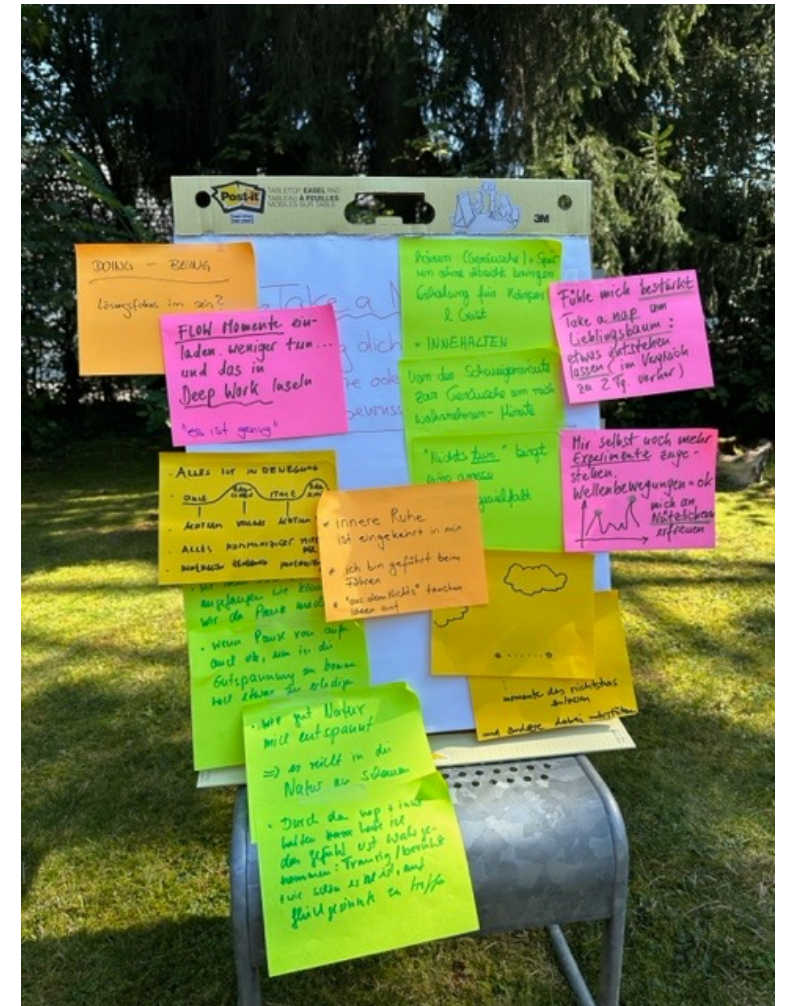 Post-it
TABLETOP EASEL PAD
TABLEAU À FEUILLES
MOBILES SUR TABLE
3M
DOING - BEING
Lösungsfokus im sein?
Take a N
dich
oder
bewuss
FLOW Momente ein-
laden. weniger tun...
und das in
Deep Work Inseln
"es ist genug"
hören (Geräusche) + Spü-
ren ohne Absicht bringen
Erholung für Körper
& Geist
= INNEHALTEN
Von der Schweigeminute
zur Geräusche um mich
wahrnehmen - Minute
"Nichts tun" birgt
eine grosse
Fühle mich bestärkt
Take a nap am
Lieblingsbaum:
etwas entstehen
lassen (im Vergleich
zu 2 Tg. vorher)
Mir selbst noch mehr
Experimente zuge-
stehen.
Wellenbewegungen = ok
mich an
Nützlichem
erfreuen
ALLES IST IN BEWEGUNG
ACHTSAM
ACHTSAM
ALLES KOMMUNIZIERT MIT
* innere Ruhe
ist eingekehrt in mir
* ich bin geführt beim
Führen
* "aus dem Nichts" tauchen
Ideen auf
angefangen wie
wir die Pause
wenn Pause von außen
auch ok, um in die
Entspannung zu kommen
etwas zu erledigen
momente des nichtstuns
und andere dabei
wie gut Natur
mich entspannt
=> es reicht in die
Natur zu schauen
Durch den nap + inne
halten habe ich
das Gefühl erst wahrge-
nommen: Traurig/berührt
wie schön es ist, auf
gleichgesinnte zu treffen